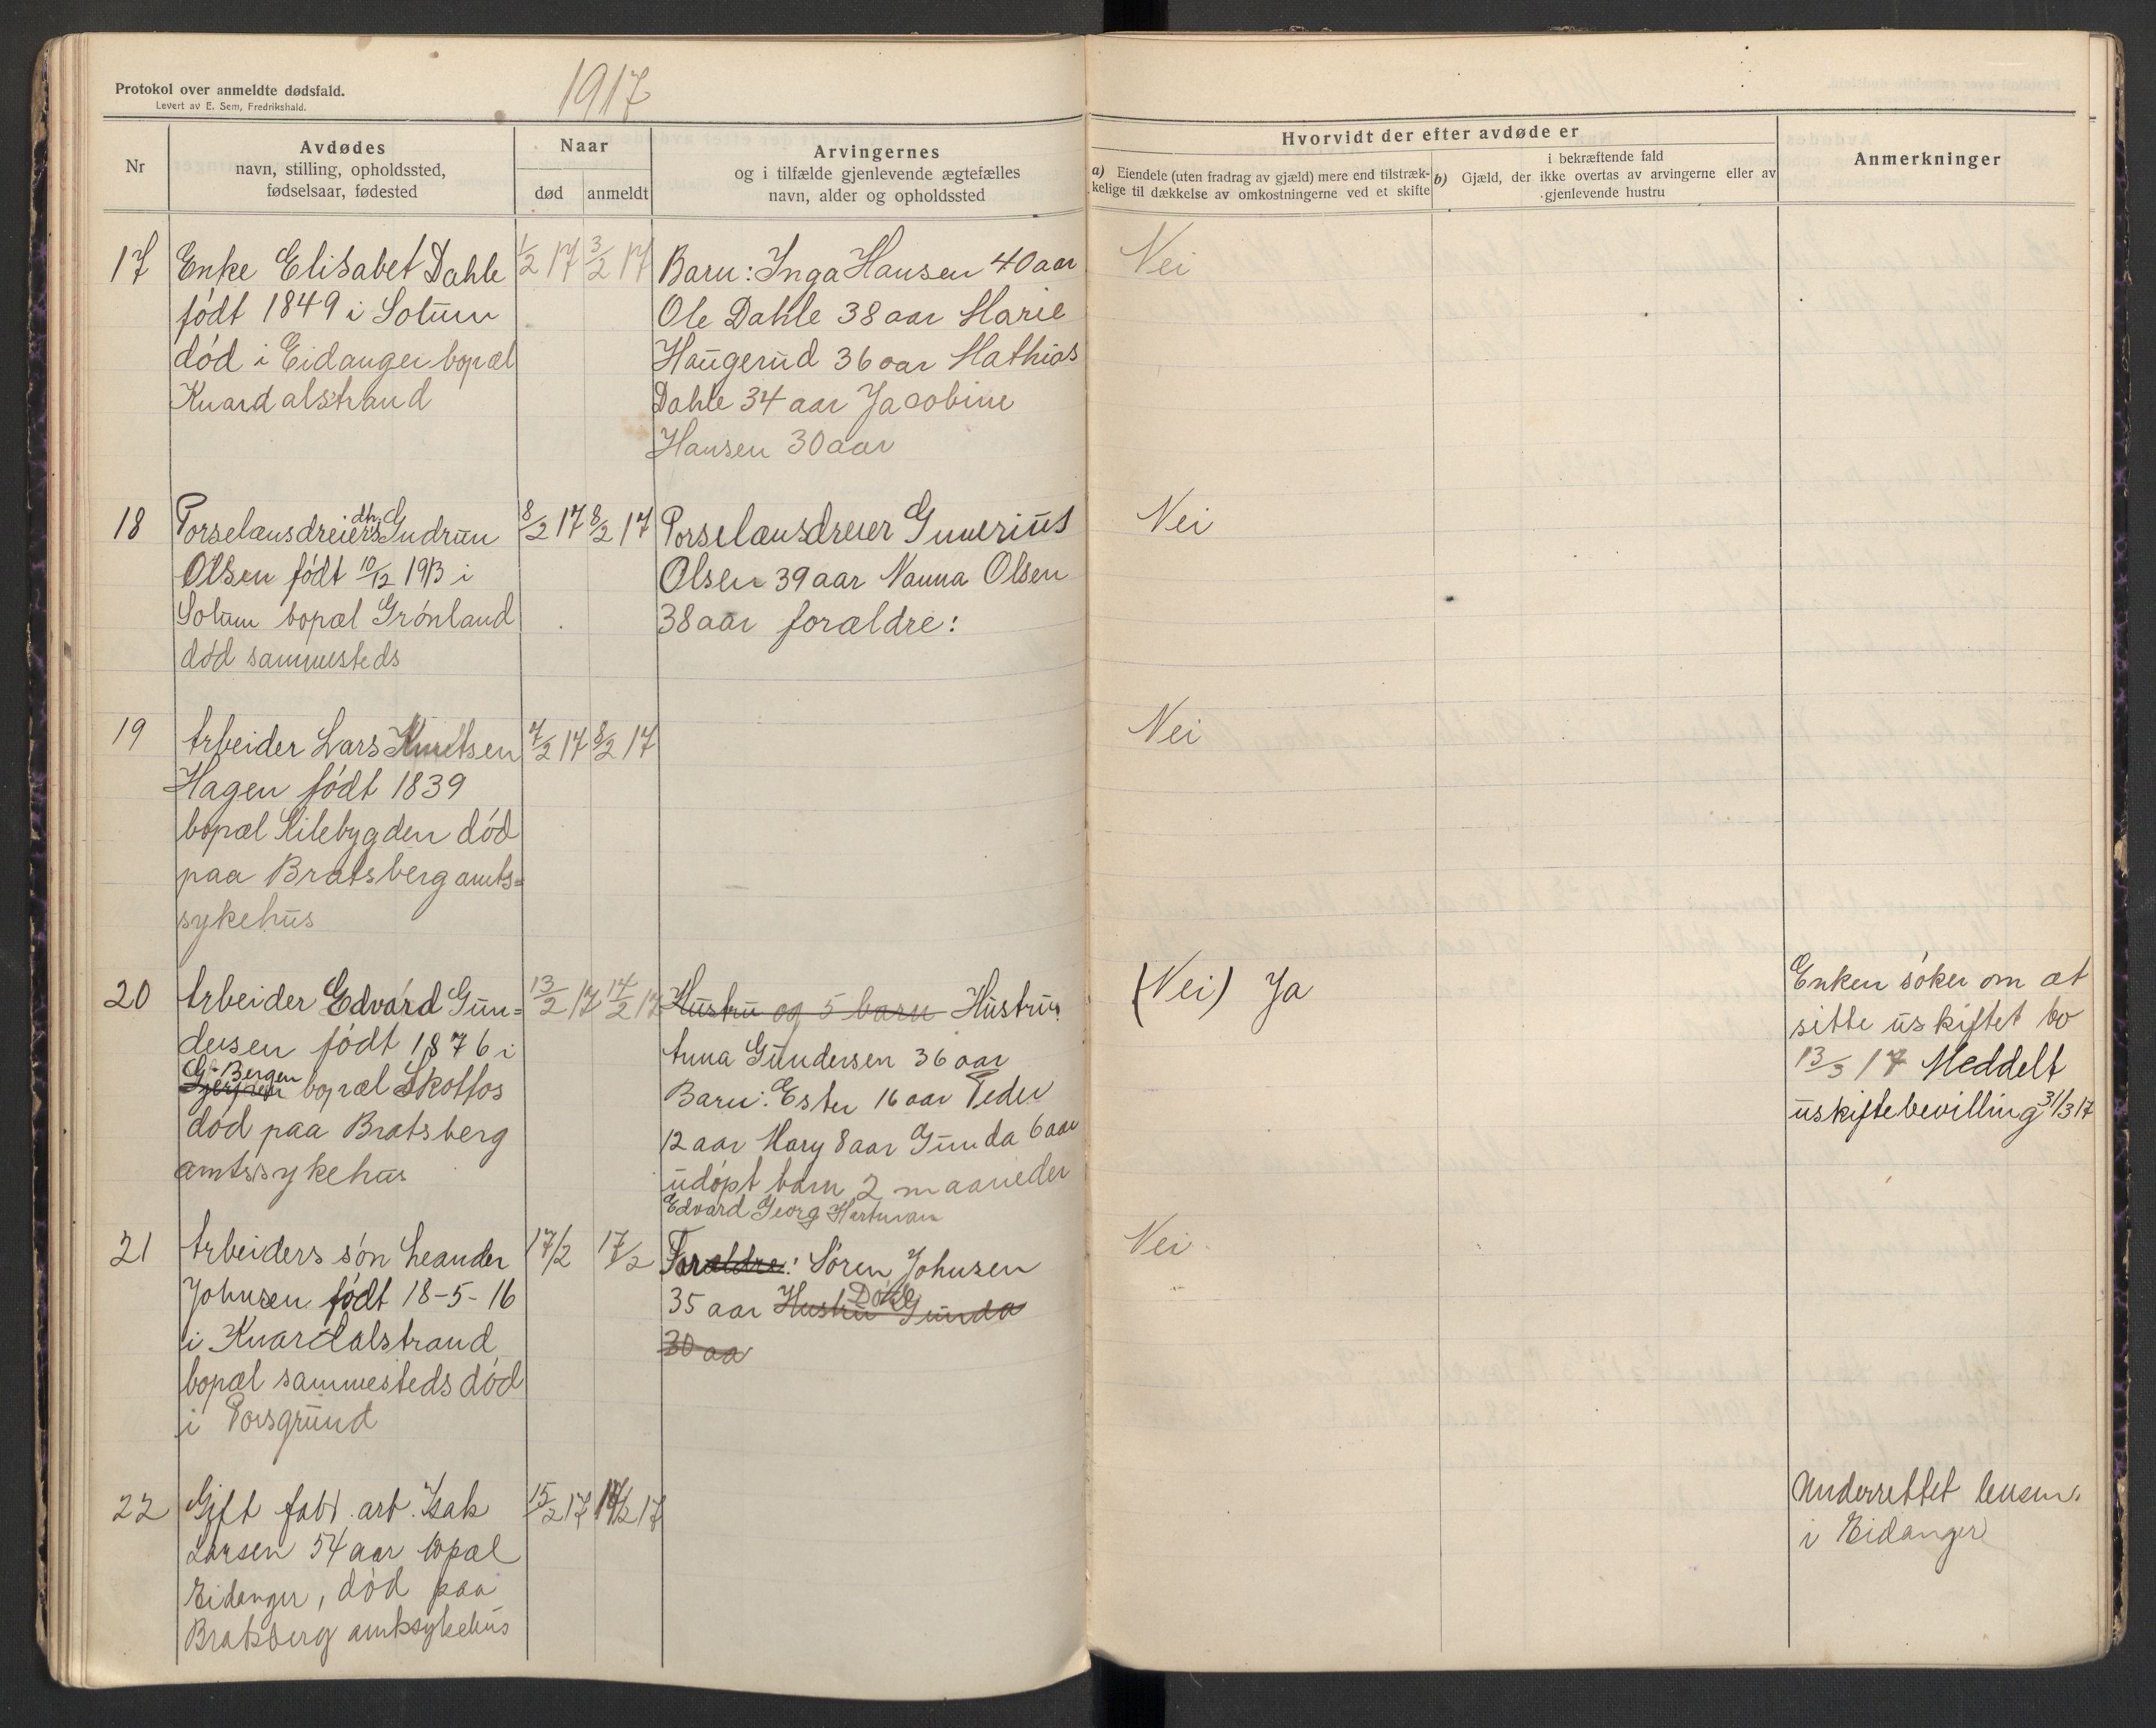 Protokol over anmeldte dødsfald.
Levert av E. Sem, Fredrikshald.
1917
Nr
Avdødes
navn, stilling, opholdssted,
fødselsaar, fødested
Naar
død
anmeldt
Arvingernes
og i tilfælde gjenlevende ægtefælles
navn, alder og opholdssted
Hvorvidt der efter avdøde er
a) Eiendele (uten fradrag av gjæld) mere end tilstræk-
kelige til dækkelse av omkostningerne ved et skifte
i bekræftende fald
b) Gjæld, der ikke overtas av arvingerne eller av
gjenlevende hustru
Anmerkninger
17
Enke Elisabet Dahle
født 1849 i Solum
død i Eidanger bopæl
Knardalstrand
1/2 17
3/2 17
Barn: Inga Hansen 40 aar
Ole Dahle 38 aar Marie
Haugerud 36 aar Mathias
Dahle 34 aar Jacobine
Hansen 30 aar
Nei
18
Porselansdreiers dtr Gudrun
Olsen født 10/12 1913 i
Solum bopæl Grønland
død sammesteds
8/2 17
8/2 17
Porselansdreier Gunerius
Olsen 39 aar Nanna Olsen
38 aar forældre:
Nei
19
Arbeider Lars Knutsen
Hagen født 1839
bopæl Kilebygden død
paa Bratsberg amts=
sykehus
7/2 17
8/2 17
Nei
20
Arbeider Edvard Gun=
dersen født 1876 i
G. Bergen
Gjerpen bopæl Skotfos
død paa Bratsberg
amtssykehus
13/2 17
14/2 17
Hustru og 5 barn Hustru
Anna Gundersen 36 aar
Barn: Ester 16 aar Peder
12 aar Hary 8 aar Gunda 6 aar
udøpt barn 2 maaneder
Edvard Georg Hartman
(Nei) Ja
Enken søker om at
sitte uskiftet bo
13/3 17 Meddelt
uskiftebevilling 31/3 17
21
Arbeiders søn Leander
Johnsen født 18-5-16
i Knardalstrand
bopæl sammesteds død
i Porsgrund
17/2
17/2
Forældre: Søren Johnsen
35 aar Hustru Gunda
30 aa
Nei
22
Gift fabr. arb. Isak
Larsen 54 aar bopæl
Eidanger, død paa
Bratsberg amtssykehus
15/2 17
/2 17
Underrettet lensm.
i Eidanger